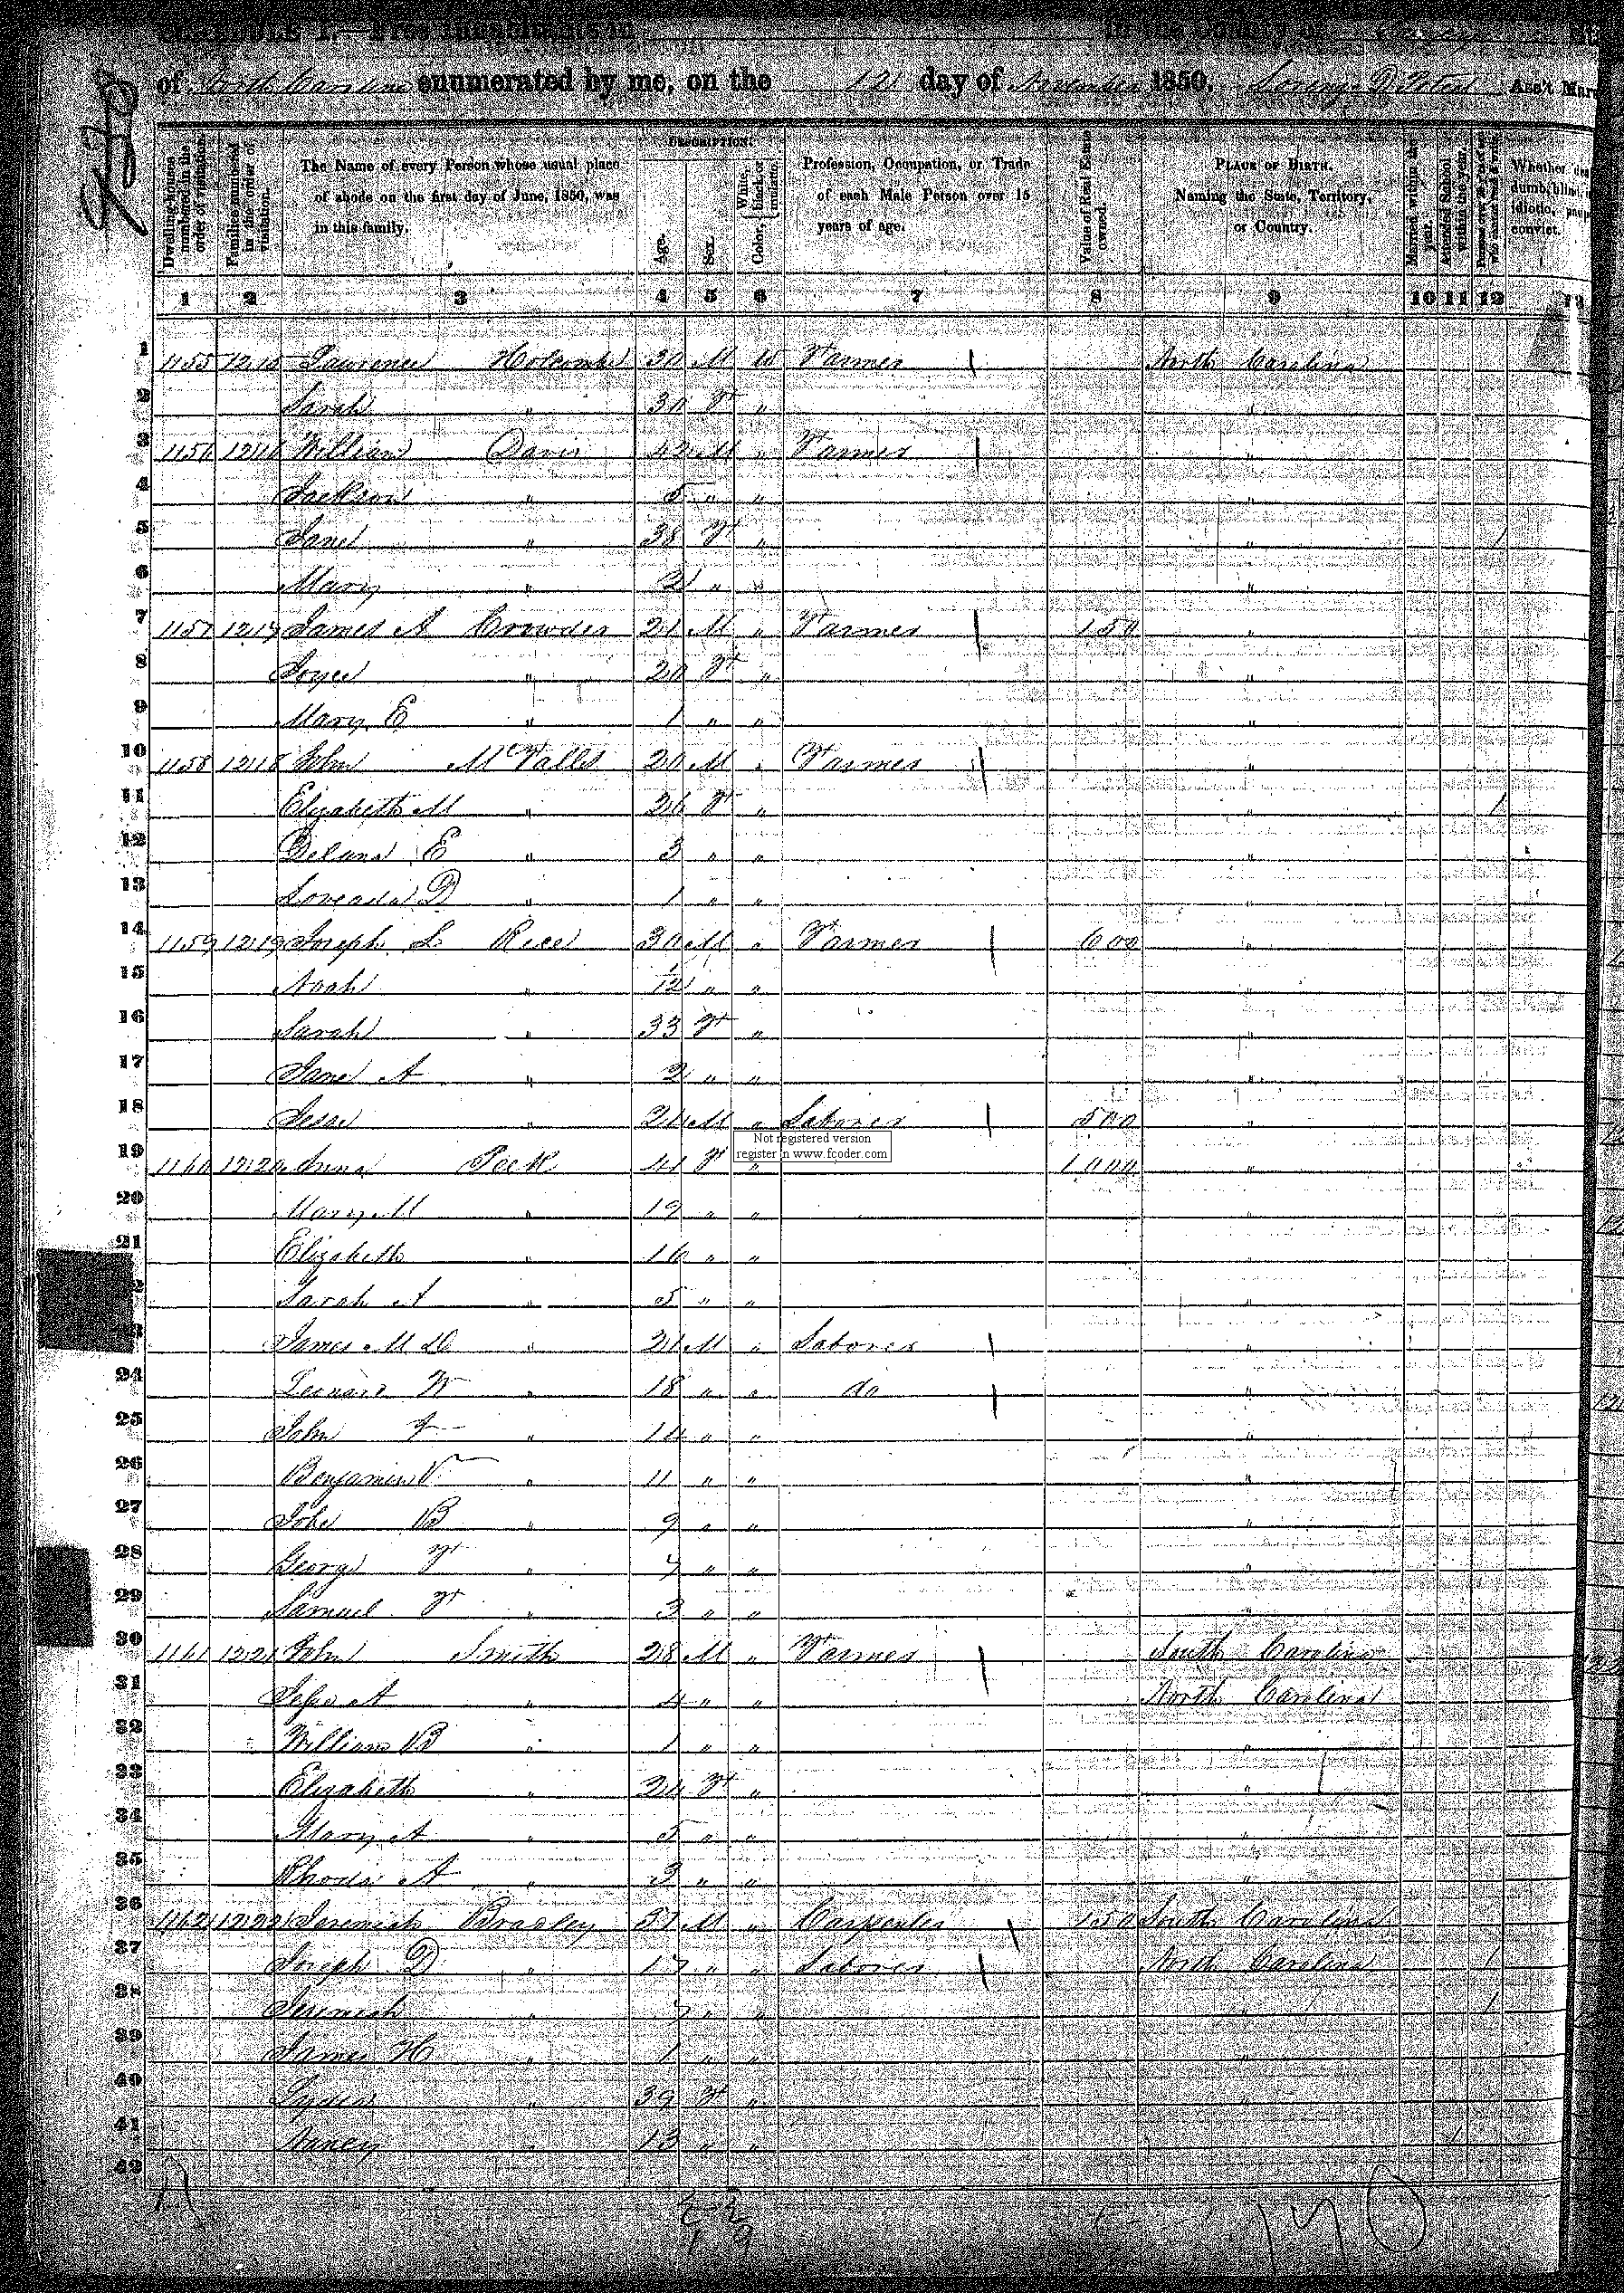 SCHEDULE I.—Free Inhabitants in in the County of
of North Carolina enumerated by me, on the 12 day of November 1850. Ass't Mars
Dwelling-houses numbered in the order of visitation.
Families numbered in the order of visitation.
The Name of every Person whose usual place of abode on the first day of June, 1850, was in this family.
DESCRIPTION.
Age.
Sex.
Color, White, black, or mulatto.
Profession, Occupation, or Trade of each Male Person over 15 years of age.
Value of Real Estate owned.
PLACE OF BIRTH. Naming the State, Territory, or Country.
Married within the year.
Attended School within the year.
Persons over 20 y'rs of age who cannot read & write.
Whether deaf dumb, blind, idiotic, paup convict.
1 2 3 4 5 6 7 8 9 10 11 12 13
1 1155 1215 Lawrence Holcomb 30 M W Farmer North Carolina
2 Sarah " 30 F " "
3 1156 1216 William Davis 42 M " Farmer "
4 Jackson " 5 " " "
5 Jane " 38 F " " 1
6 Mary " 2 " " "
7 1157 1217 James A Crowder 21 M " Farmer 150 "
8 Joyce " 20 F " "
9 Mary E " 1 " " "
10 1158 1218 John McFalls 20 M " Farmer "
11 Elizabeth M " 26 F " " 1
12 E " 3 " " "
13 D " 1 " " "
14 1159 1219 Joseph L Rice 30 M " Farmer 600 "
15 Noah " 1/12 " " "
16 Sarah " 33 F " "
17 Jane A " 2 " " "
18 Jesse 24 M " Laborer 500 "
19 1160 1220 Anna Peek 41 F " 1000 "
Not registered version
register n www.fcoder.com
20 Mary M " 19 " " "
21 Elizabeth " 16 " " "
22 Sarah A " 5 " " "
23 James M " 21 M " Laborer "
24 Leonard W " 18 " " do "
25 John " 14 " " "
26 Benjamin V " 11 " " "
27 Jobe B " 9 " " "
28 George F " 7 " " "
29 Samuel F " 3 " " "
30 1161 1221 John Smith 28 M " Farmer South Carolina
31 Jesse A " 4 " " North Carolina
32 William B " 1 " " "
33 Elizabeth " 24 F " "
34 Mary A " 5 " " "
35 Rhoda A " 3 " " "
36 1162 1222 Jeremiah Bradley 57 M " Carpenter 150 South Carolina
37 Joseph D " 17 " " Laborer North Carolina 1
38 Jeremiah " 7 " " " 1
39 James H " 1 " " "
40 " 39 F " "
41 Nancy " 13 " " "
42